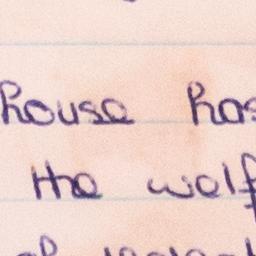 house has
the wolf